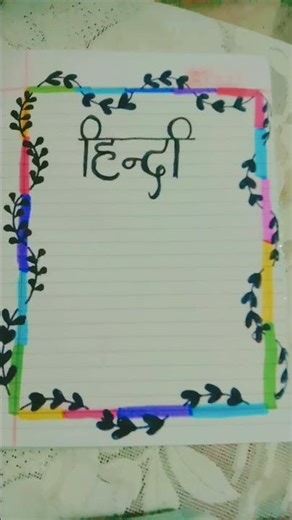 हिन्दी